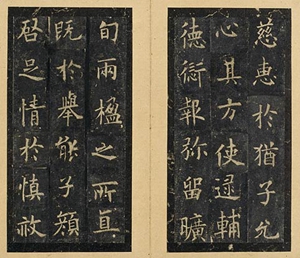 慈惠於猶子允
心其方使逮輔
德銜報弥留曠
旬兩楹之所
既於舉能子顏
啓足情於慎